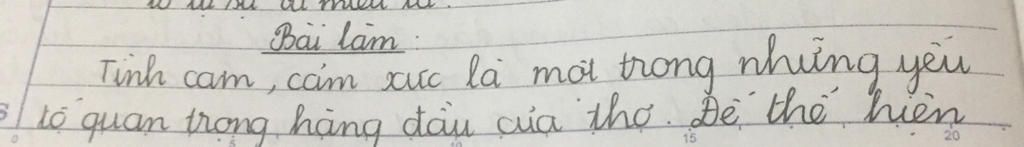 Bài làm:
Tình cảm, cảm xúc là một trong những yếu
tố quan trọng hàng đầu của thơ. Để thể hiện
15
20